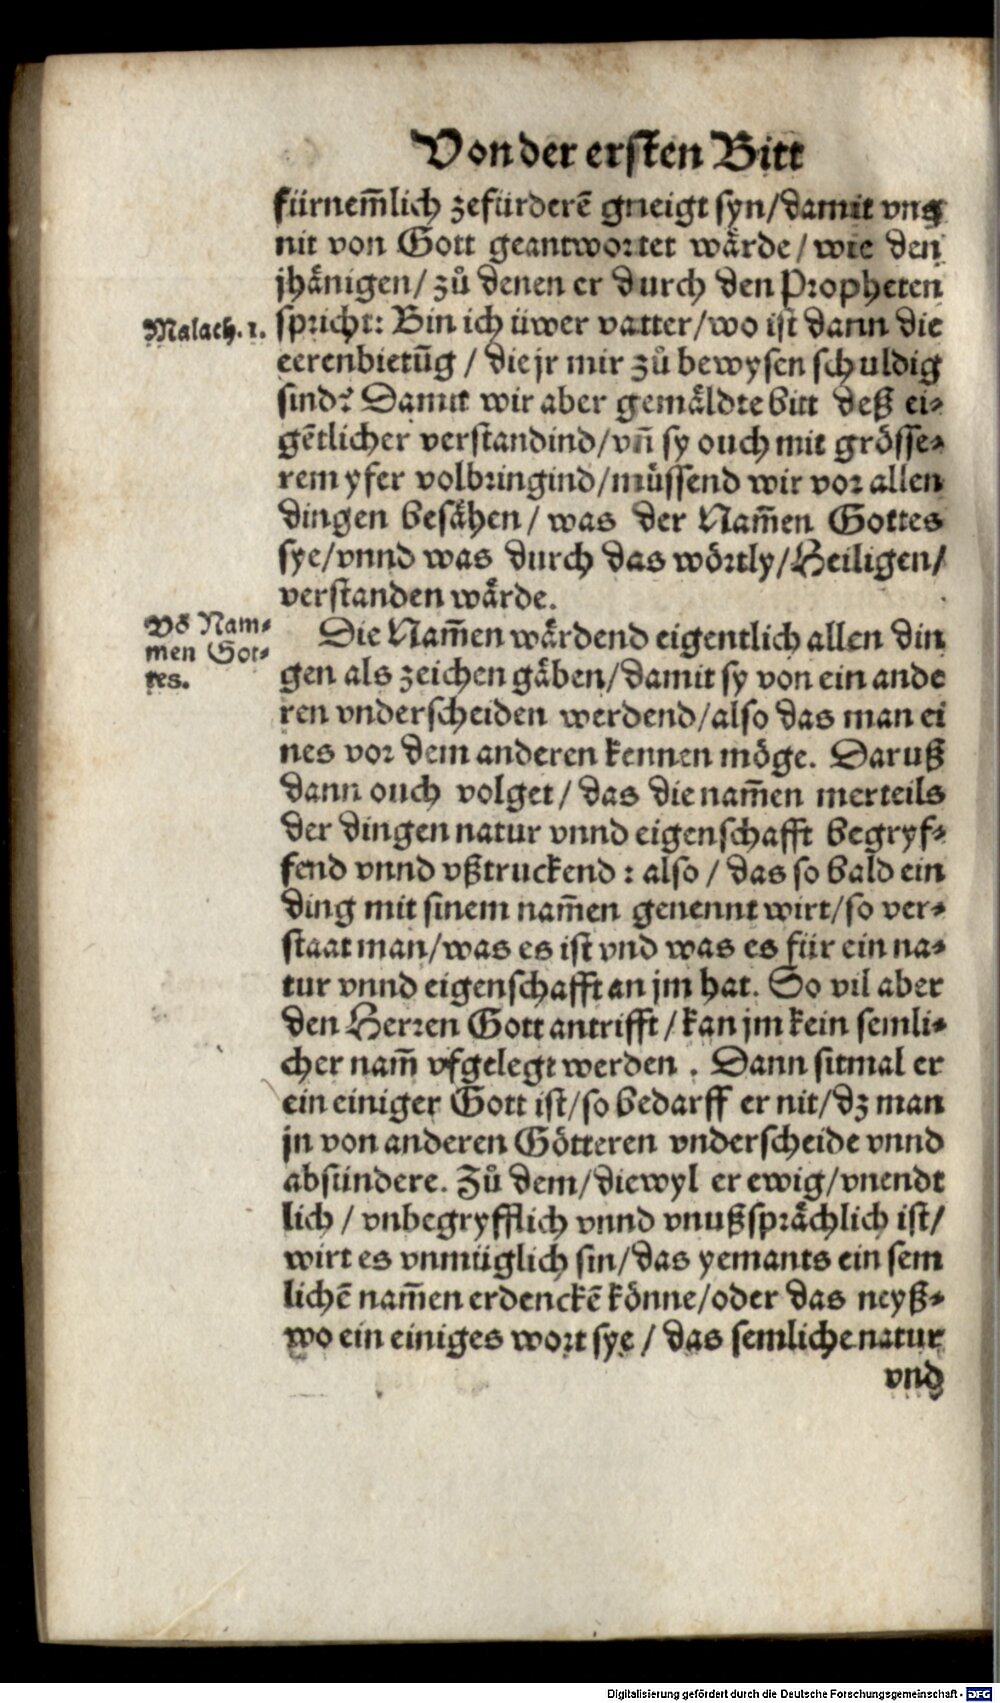 Von der ersten Bitt
fürnem̃lich zefürderẽ gneigt syn/damit vns
nit von Gott geantwortet wårde/wie den
jhånigen/zů denen er durch den Propheten
Malach. 1.
spricht: Bin ich üwer vatter/wo ist dann die
eerenbietũg / die jr mir zů bewysen schuldig
sind? Damit wir aber gemåldte bitt deß ei-
gẽtlicher verstandind/vñ sy ouch mit grösse-
rem yfer volbringind/müssend wir vor allen
dingen besåhen/ was der Nam̃en Gottes
sye/vnnd was durch das wörtly/Heiligen/
verstanden wårde.
Võ Nam-
men Got-
tes.
Die Nam̃en wårdend eigentlich allen din
gen als zeichen gåben/damit sy von ein ande
ren vnderscheiden werdend/also das man ei
nes vor dem anderen kennen möge. Daruß
dann ouch volget/ das die nam̃en merteils
der dingen natur vnnd eigenschafft begryf-
fend vnnd vßtruckend : also / das so bald ein
ding mit sinem nam̃en genennt wirt/so ver-
staat man/was es ist vnd was es für ein na-
tur vnnd eigenschafft an jm hat. So vil aber
den Herren Gott antrifft/kan jm kein semli-
cher nam̃ vfgelegt werden . Dann sitmal er
ein einiger Gott ist/so bedarff er nit/dz man
jn von anderen Götteren vnderscheide vnnd
absündere. Zů dem/diewyl er ewig/vnendt
lich / vnbegryfflich vnnd vnußspråchlich ist/
wirt es vnmüglich sin/das yemants ein sem
lichẽ nam̃en erdenckẽ könne/oder das neyß-
wo ein einiges wort sye / das semliche natur
vnd
Digitalisierung gefördert durch die Deutsche Forschungsgemeinschaft - DFG